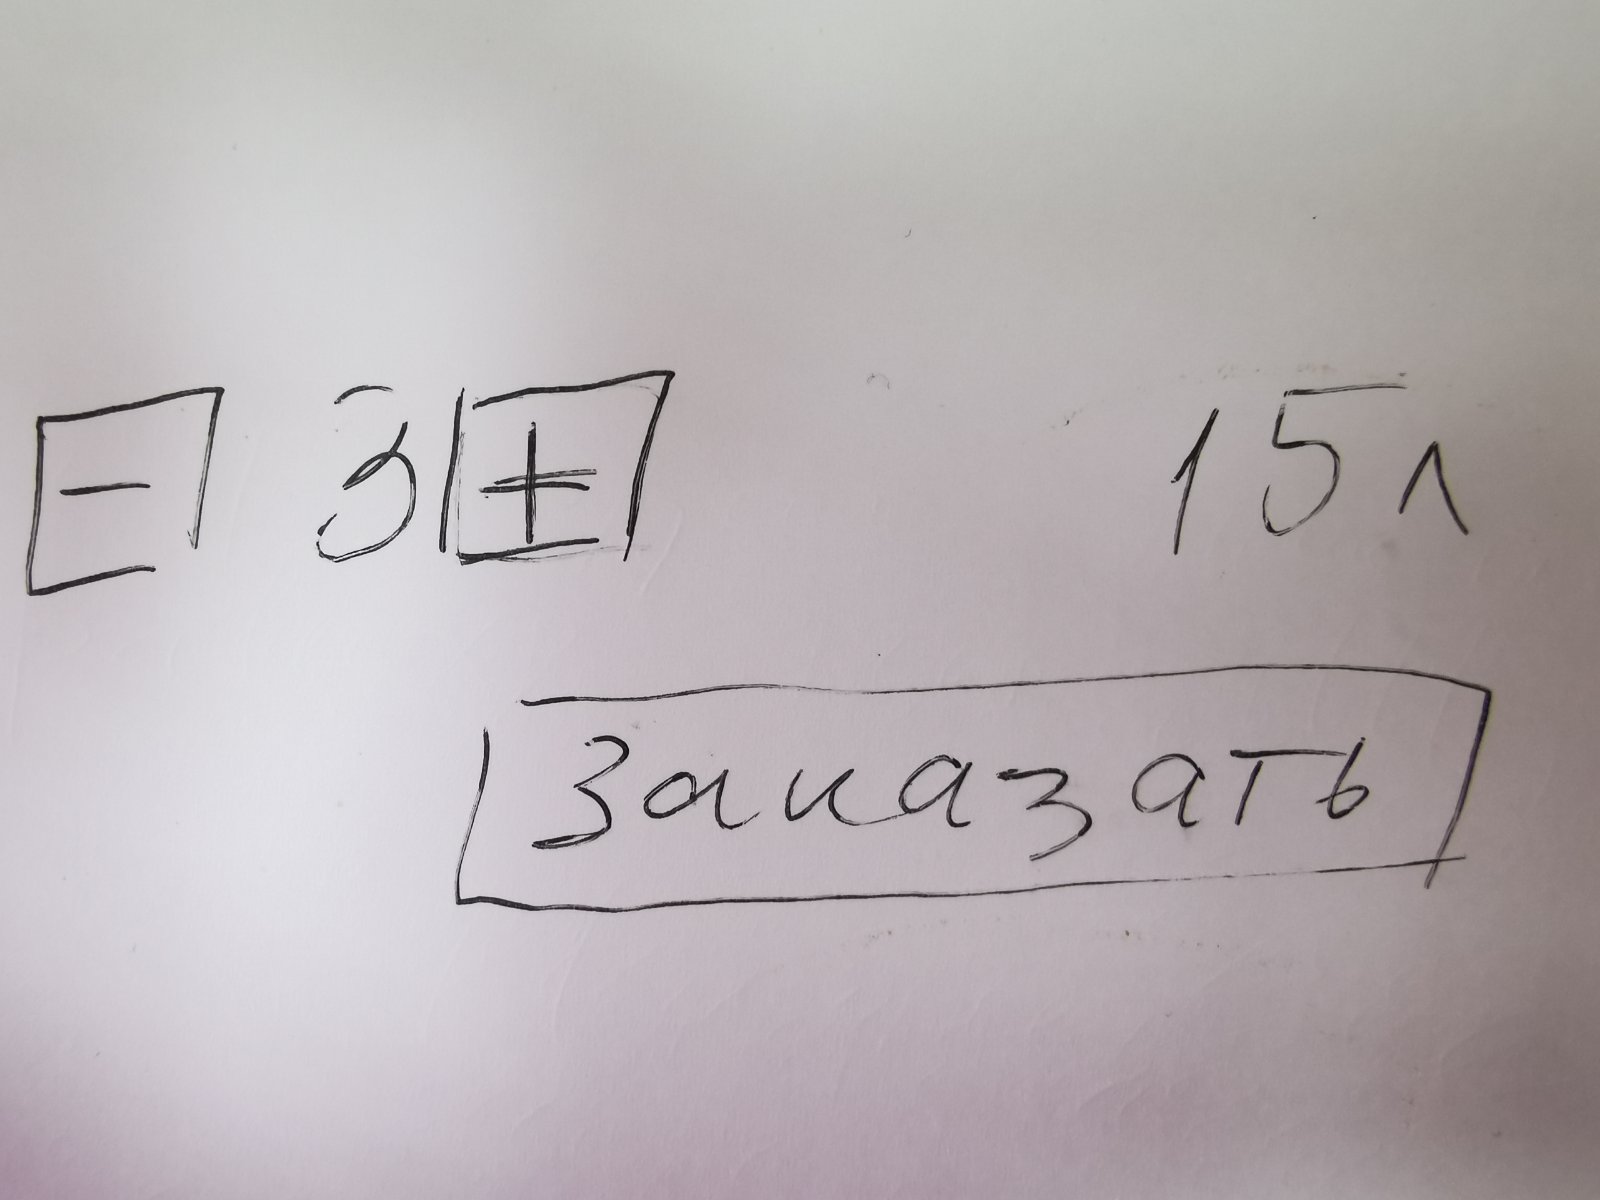 - 3 + 15 л
Заказать